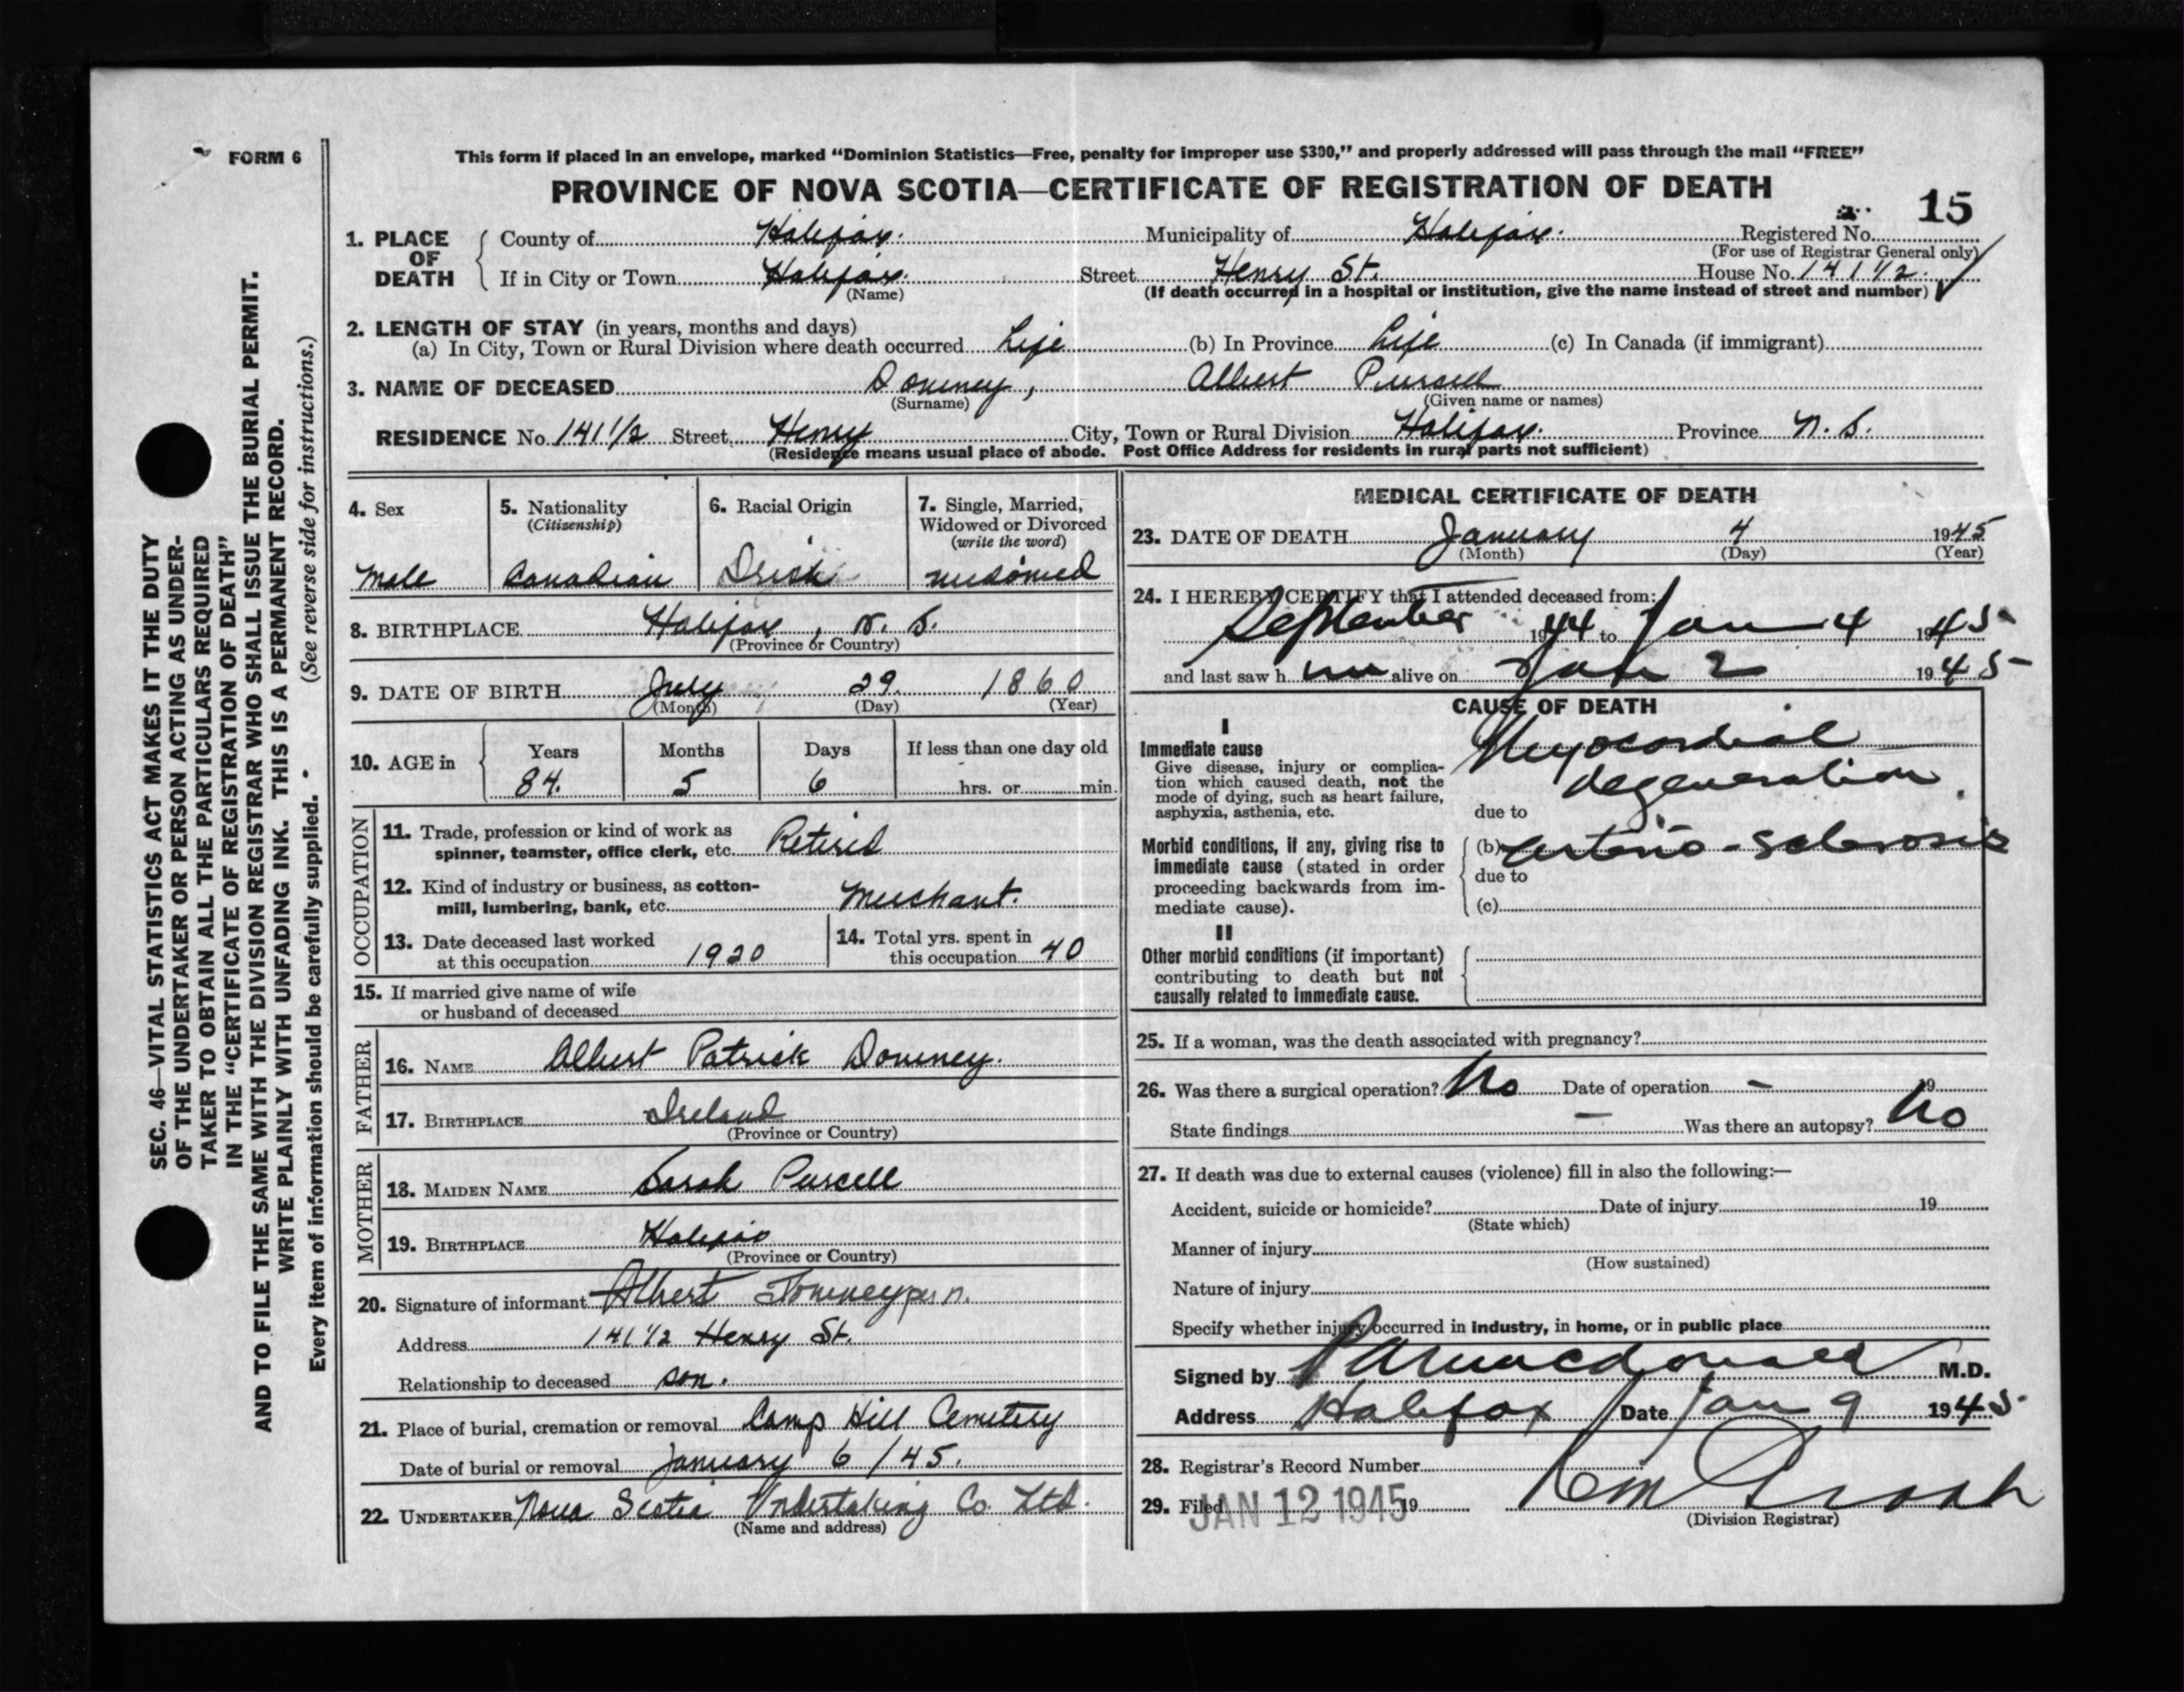 FORM 6
This form if placed in an envelope, marked “Dominion Statistics—Free, penalty for improper use $300,” and properly addressed will pass through the mail “FREE”
PROVINCE OF NOVA SCOTIA—CERTIFICATE OF REGISTRATION OF DEATH
15
1. PLACE OF DEATH
County of Halifax. Municipality of Halifax. Registered No.
(For use of Registrar General only)
If in City or Town Halifax. Street Henry St. House No. 141 1/2.
(Name) (If death occurred in a hospital or institution, give the name instead of street and number)
2. LENGTH OF STAY (in years, months and days)
(a) In City, Town or Rural Division where death occurred Life (b) In Province Life (c) In Canada (if immigrant)
3. NAME OF DECEASED Downey, Albert Pursell
(Surname) (Given name or names)
RESIDENCE No. 141 1/2 Street Henry City, Town or Rural Division Halifax. Province N. S.
(Residence means usual place of abode. Post Office Address for residents in rural parts not sufficient)
4. Sex
Male
5. Nationality
(Citizenship)
Canadian
6. Racial Origin
Irish
7. Single, Married,
Widowed or Divorced
(write the word)
widowed
8. BIRTHPLACE Halifax, N. S.
(Province or Country)
9. DATE OF BIRTH July 29. 1860
(Month) (Day) (Year)
10. AGE in
Years Months Days If less than one day old
84. 5 6 hrs. or min.
OCCUPATION
11. Trade, profession or kind of work as
spinner, teamster, office clerk, etc. Retired
12. Kind of industry or business, as cotton-
mill, lumbering, bank, etc. Merchant.
13. Date deceased last worked
at this occupation 1920
14. Total yrs. spent in
this occupation 40
15. If married give name of wife
or husband of deceased
FATHER
16. NAME Albert Patrick Downey.
17. BIRTHPLACE Ireland
(Province or Country)
MOTHER
18. MAIDEN NAME Sarah Purcell
19. BIRTHPLACE Halifax
(Province or Country)
20. Signature of informant Albert Downey per n.
Address 141 1/2 Henry St.
Relationship to deceased son.
21. Place of burial, cremation or removal Camp Hill Cemetery
Date of burial or removal January 6 / 45.
22. UNDERTAKER Nova Scotia Undertaking Co. Ltd.
(Name and address)
MEDICAL CERTIFICATE OF DEATH
23. DATE OF DEATH January 4 1945
(Month) (Day) (Year)
24. I HEREBY CERTIFY that I attended deceased from:
September 1944 to Jan 4 1945
and last saw h im alive on Jan 2 1945
CAUSE OF DEATH
I
Immediate cause
Give disease, injury or complica-
tion which caused death, not the
mode of dying, such as heart failure,
asphyxia, asthenia, etc.
Myocardial
degeneration.
due to
Morbid conditions, if any, giving rise to
immediate cause (stated in order
proceeding backwards from im-
mediate cause).
(b) arterio-sclerosis
due to
(c)
II
Other morbid conditions (if important)
contributing to death but not
causally related to immediate cause.
25. If a woman, was the death associated with pregnancy?
26. Was there a surgical operation? No Date of operation – 19
State findings – Was there an autopsy? No
27. If death was due to external causes (violence) fill in also the following:—
Accident, suicide or homicide? Date of injury 19
(State which)
Manner of injury
(How sustained)
Nature of injury
Specify whether injury occurred in industry, in home, or in public place
Signed by Macdonald M.D.
Address Halifax Date Jan 9 1945
28. Registrar's Record Number
29. Filed JAN 12 1945 19
(Division Registrar)
SEC. 46—VITAL STATISTICS ACT MAKES IT THE DUTY
OF THE UNDERTAKER OR PERSON ACTING AS UNDER-
TAKER TO OBTAIN ALL THE PARTICULARS REQUIRED
IN THE “CERTIFICATE OF REGISTRATION OF DEATH”
AND TO FILE THE SAME WITH THE DIVISION REGISTRAR WHO SHALL ISSUE THE BURIAL PERMIT.
WRITE PLAINLY WITH UNFADING INK. THIS IS A PERMANENT RECORD.
Every item of information should be carefully supplied. (See reverse side for instructions.)